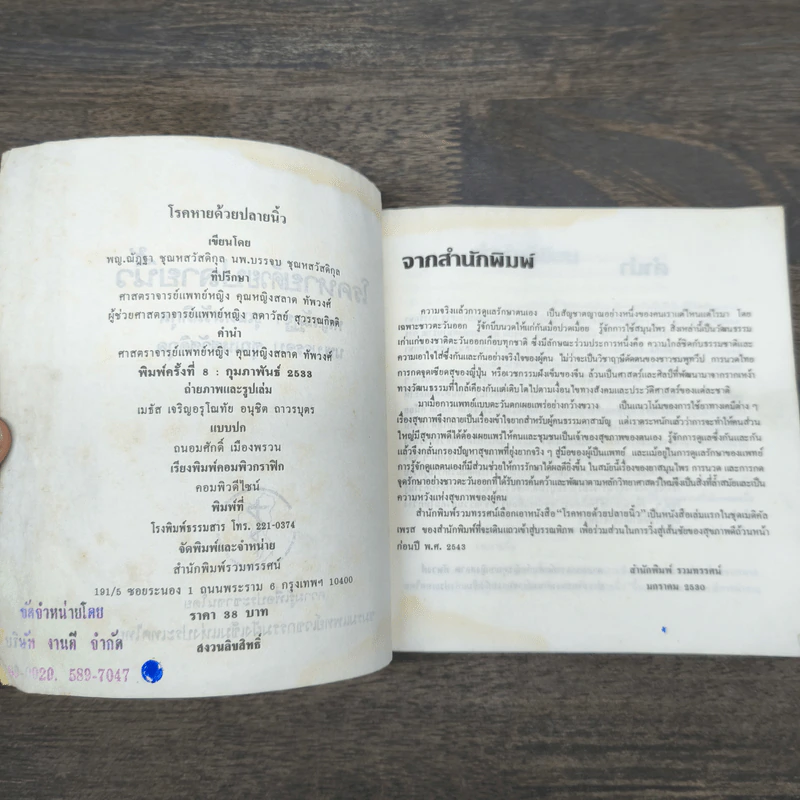 โรคหายด้วยปลายนิ้ว
เขียนโดย
พญ.ณัฏฐา ชุณหสวัสดิกุล นพ.บรรจบ ชุณหสวัสดิกุล
ที่ปรึกษา
ศาสตราจารย์แพทย์หญิง คุณหญิงสลาด ทัพวงศ์
ผู้ช่วยศาสตราจารย์แพทย์หญิง ลดาวัลย์ สุวรรณกิตติ
คำนำ
ศาสตราจารย์แพทย์หญิง คุณหญิงสลาด ทัพวงศ์
พิมพ์ครั้งที่ 8 : กุมภาพันธ์ 2533
ถ่ายภาพและรูปเล่ม
เมธัส เจริญอรุโณทัย อนุชิต ถาวรบุตร
แบบปก
ถนอมศักดิ์ เมืองพรวน
เรียงพิมพ์คอมพิวกราฟิก
คอมพิวดีไซน์
พิมพ์ที่
โรงพิมพ์ธรรมสาร โทร. 221-0374
จัดพิมพ์และจำหน่าย
สำนักพิมพ์รวมทรรศน์
191/5 ซอยระนอง 1 ถนนพระราม 6 กรุงเทพฯ 10400
ราคา 38 บาท
สงวนลิขสิทธิ์
จัดจำหน่ายโดย
งานดี จำกัด
589-7047
จากสำนักพิมพ์
ความจริงแล้วการดูแลรักษาตนเอง เป็นสัญชาตญาณอย่างหนึ่งของคนเราแต่ไหนแต่ไรมา โดย
เฉพาะชาวตะวันออก รู้จักบีบนวดให้แก่กันเมื่อปวดเมื่อย รู้จักการใช้สมุนไพร สิ่งเหล่านี้เป็นวัฒนธรรม
เก่าแก่ของชาติตะวันออกเกือบทุกชาติ ซึ่งมีลักษณะร่วมประการหนึ่งคือ ความใกล้ชิดกับธรรมชาติและ
ความเอาใจใส่ซึ่งกันและกันอย่างจริงใจของผู้คน ไม่ว่าจะเป็นวิชาฤาษีดัดตนของชาวชมพูทวีป การนวดไทย
การกดจุดเขียตสุของญี่ปุ่น หรือเวชกรรมฝังเข็มของจีน ล้วนเป็นศาสตร์และศิลป์ที่พัฒนามาจากรากเหง้า
ทางวัฒนธรรมที่ใกล้เคียงกันแต่เติบโตไปตามเงื่อนไขทางสังคมและประวัติศาสตร์ของแต่ละชาติ
มาเมื่อการแพทย์แบบตะวันตกเผยแพร่อย่างกว้างขวาง เป็นแนวโน้มของการใช้ยาทางเคมีต่าง ๆ
เรื่องสุขภาพจึงกลายเป็นเรื่องเข้าใจยากสำหรับผู้คนธรรมดาสามัญ แต่เราตระหนักแล้วว่าการจะทำให้คนส่วน
ใหญ่มีสุขภาพดีได้ต้องเผยแพร่ให้คนและชุมชนเป็นเจ้าของสุขภาพของตนเอง รู้จักการดูแลซึ่งกันและกัน
แล้วจึงกลั่นกรองปัญหาสุขภาพที่ยุ่งยากจริง ๆ สู่มือของผู้เป็นแพทย์ และแม้อยู่ในการดูแลรักษาของแพทย์
การรู้จักดูแลตนเองก็มีส่วนช่วยให้การรักษาได้ผลดียิ่งขึ้น ในสมัยนี้เรื่องของยาสมุนไพร การนวด และการกด
จุดรักษาอย่างชาวตะวันออกที่ได้รับการค้นคว้าและพัฒนาตามหลักวิทยาศาสตร์ใหม่จึงเป็นสิ่งที่ล้ำสมัยและเป็น
ความหวังแห่งสุขภาพของผู้คน
สำนักพิมพ์รวมทรรศน์เลือกเอาหนังสือ "โรคหายด้วยปลายนิ้ว" เป็นหนังสือเล่มแรกในชุดเมดิคัล
เพรส ของสำนักพิมพ์ที่จะเดินแถวเข้าสู่บรรณพิภพ เพื่อร่วมส่วนในการวิ่งสู่เส้นชัยของสุขภาพดีถ้วนหน้า
ก่อนปี พ.ศ. 2543
สำนักพิมพ์ รวมทรรศน์
มกราคม 2530